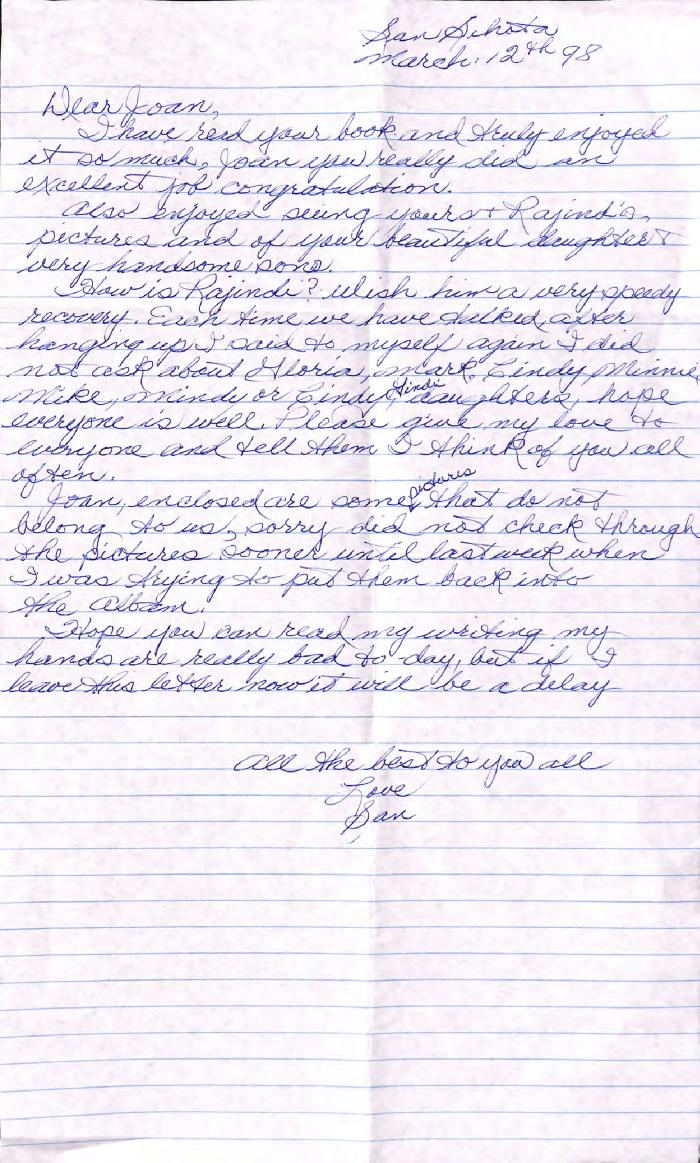 San Sihota
March. 12th 98
Dear Joan,
I have read your book and truly enjoyed
it so much, Joan you really did an
excellent job congratulation.
Also enjoyed seing yours + Rajindi's,
pictures and of your beautiful daughter +
very handsome sons.
How is Rajindi? Wish him a very speedy
recovery. Each time we have talked, after
hanging up I said to myself again I did
not ask about Gloria, Mark, Cindy, Minnie,
Mike, Mindy or Cindy, daughters, hope
everyone is well. Please give my love to
everyone and tell them I think of you all
often.
Joan, enclosed are some pictures that do not
belong to us, sorry did not check through
the pictures sooner until last week when
I was trying to put them back into
the Albam.
Hope you can read my writing my
hands are really bad to-day, but if I
leave this letter now it will be a delay
All the best to you all
Love
San